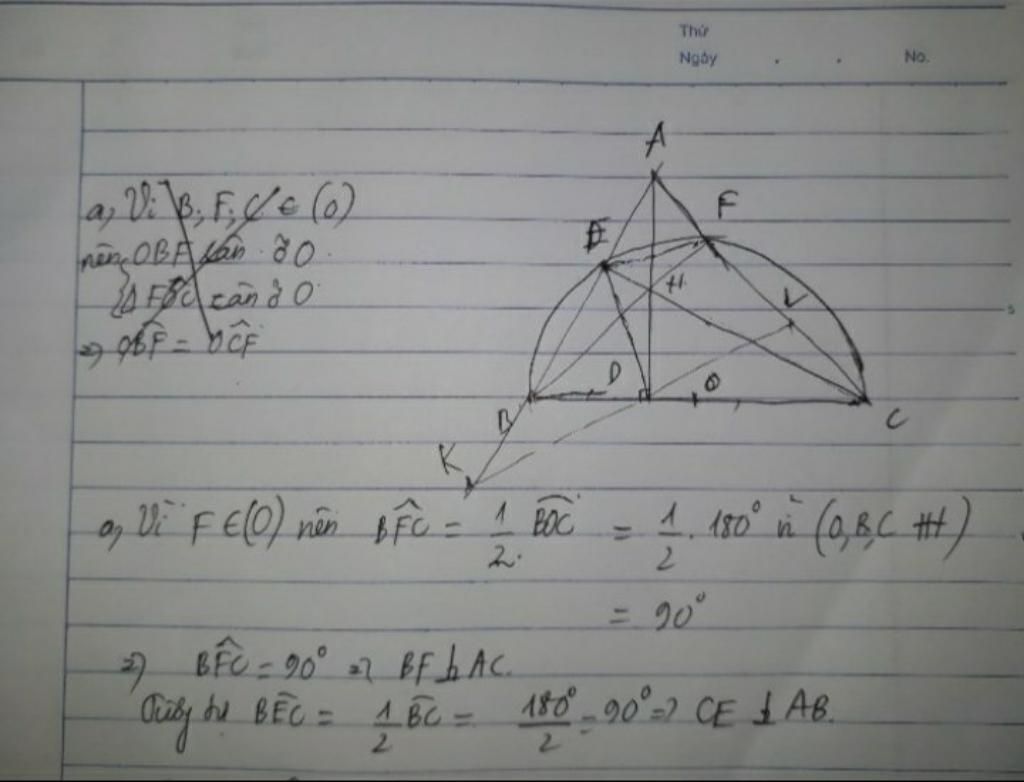 Thứ
Ngày . . No.
a, Vì B, F, C ∈ (O)
nên OBF cân ở O
Δ FOC cân ở O
=> OBF̂ = OĈF
A
F
E
H
D
O
B
C
K
a, Vì F ∈ (O) nên BF̂C = 1/2 BOC = 1/2 . 180° vì (O, B, C TH)
= 90°
=> BF̂C = 90° => BF ⊥ AC.
Tương tự BÊC = 1/2 BC = 180°/2 = 90° => CE ⊥ AB.